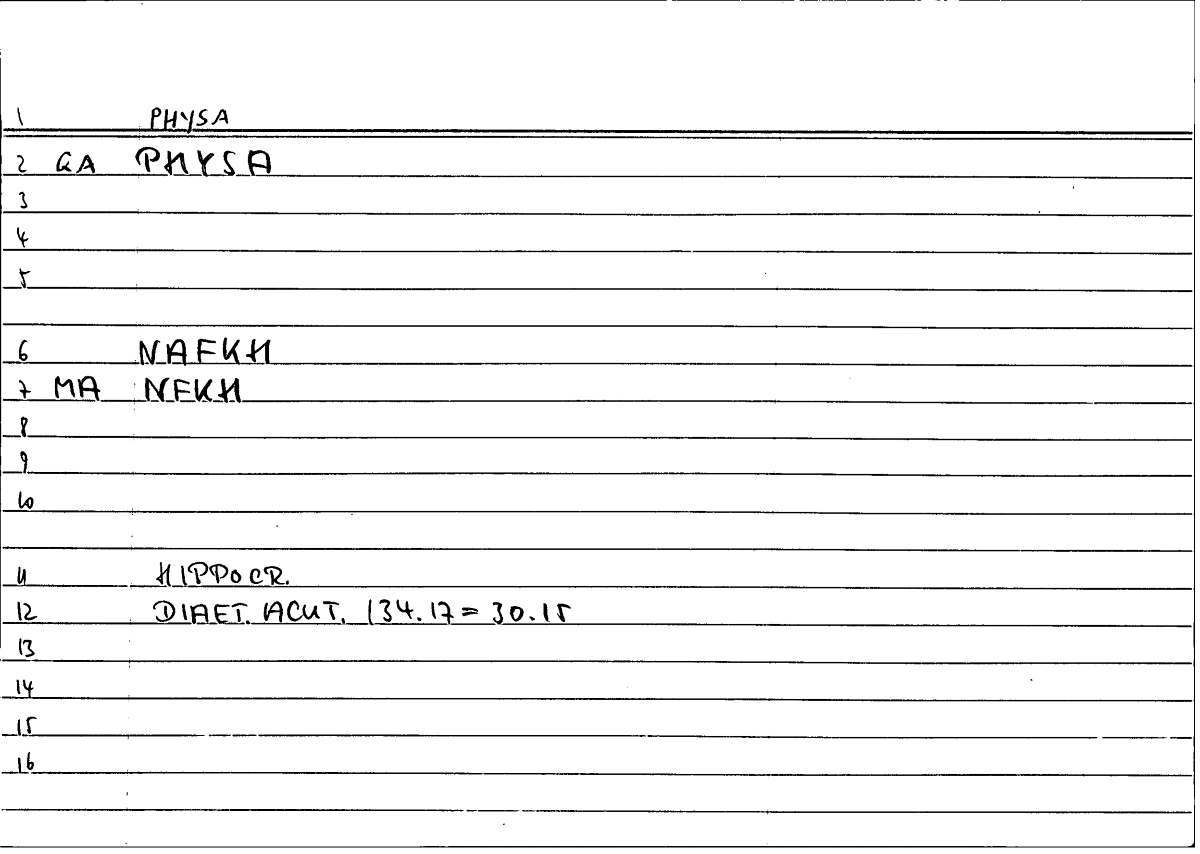 1 PHYSA
2 GA PHYSA
3
4
5
6 NAFKH
7 MA NFKH
8
9
10
11 HIPPOCR.
12 DIAET. ACUT. 134.17 = 30.15
13
14
15
16